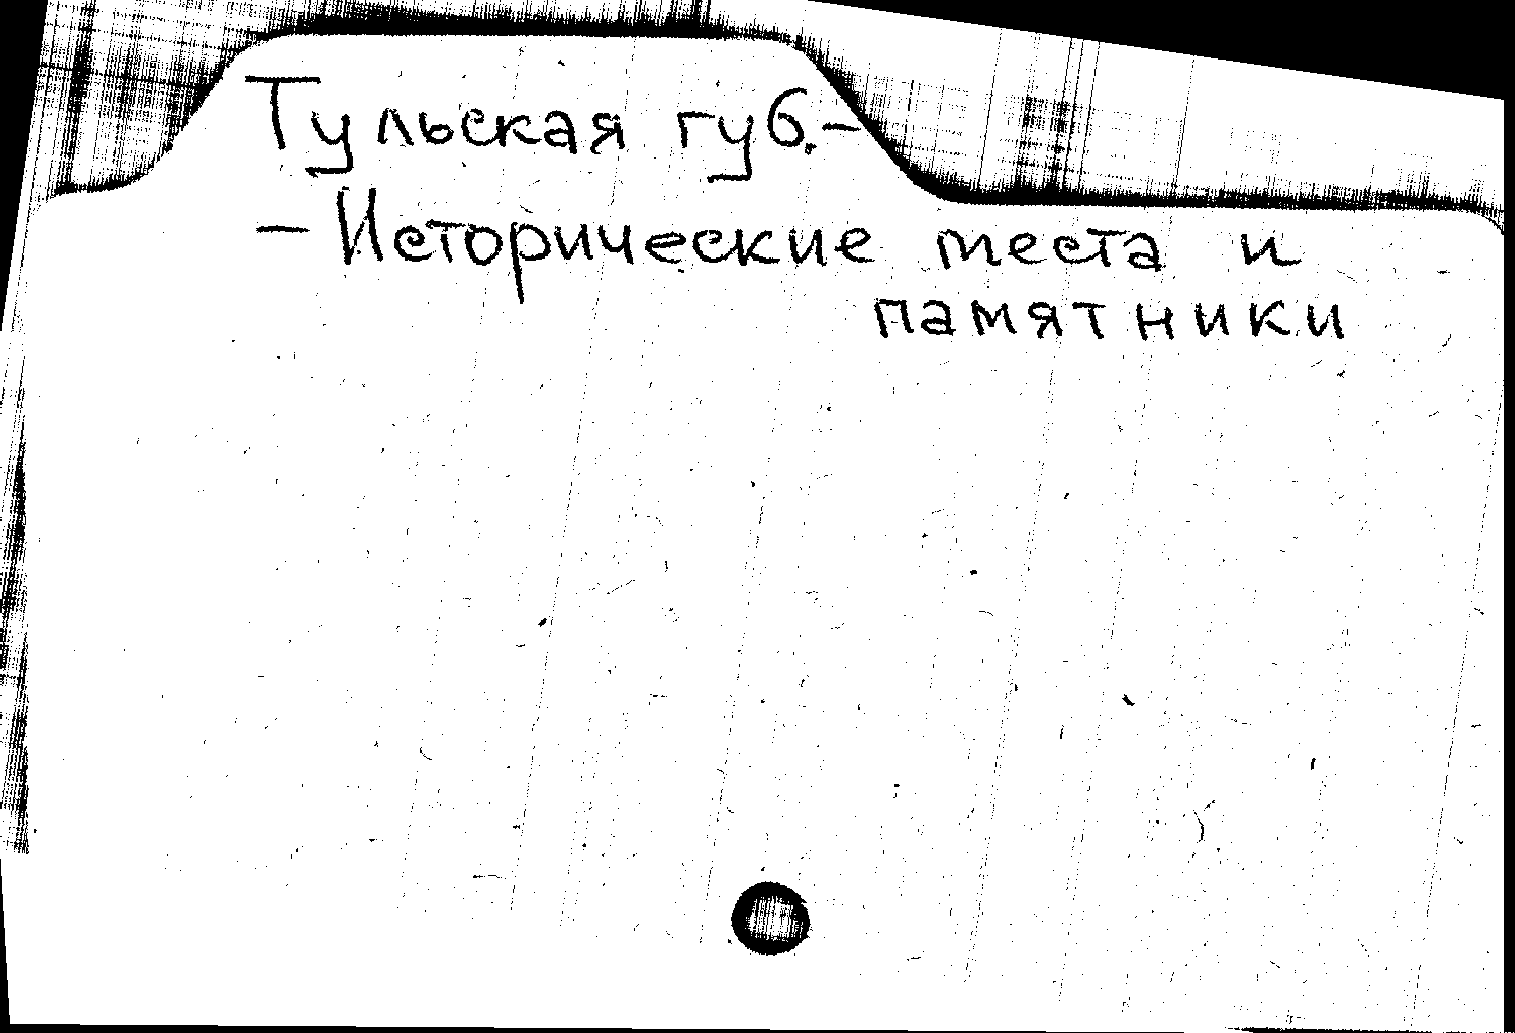 Тульская губ.-
- Исторические места и
памятники